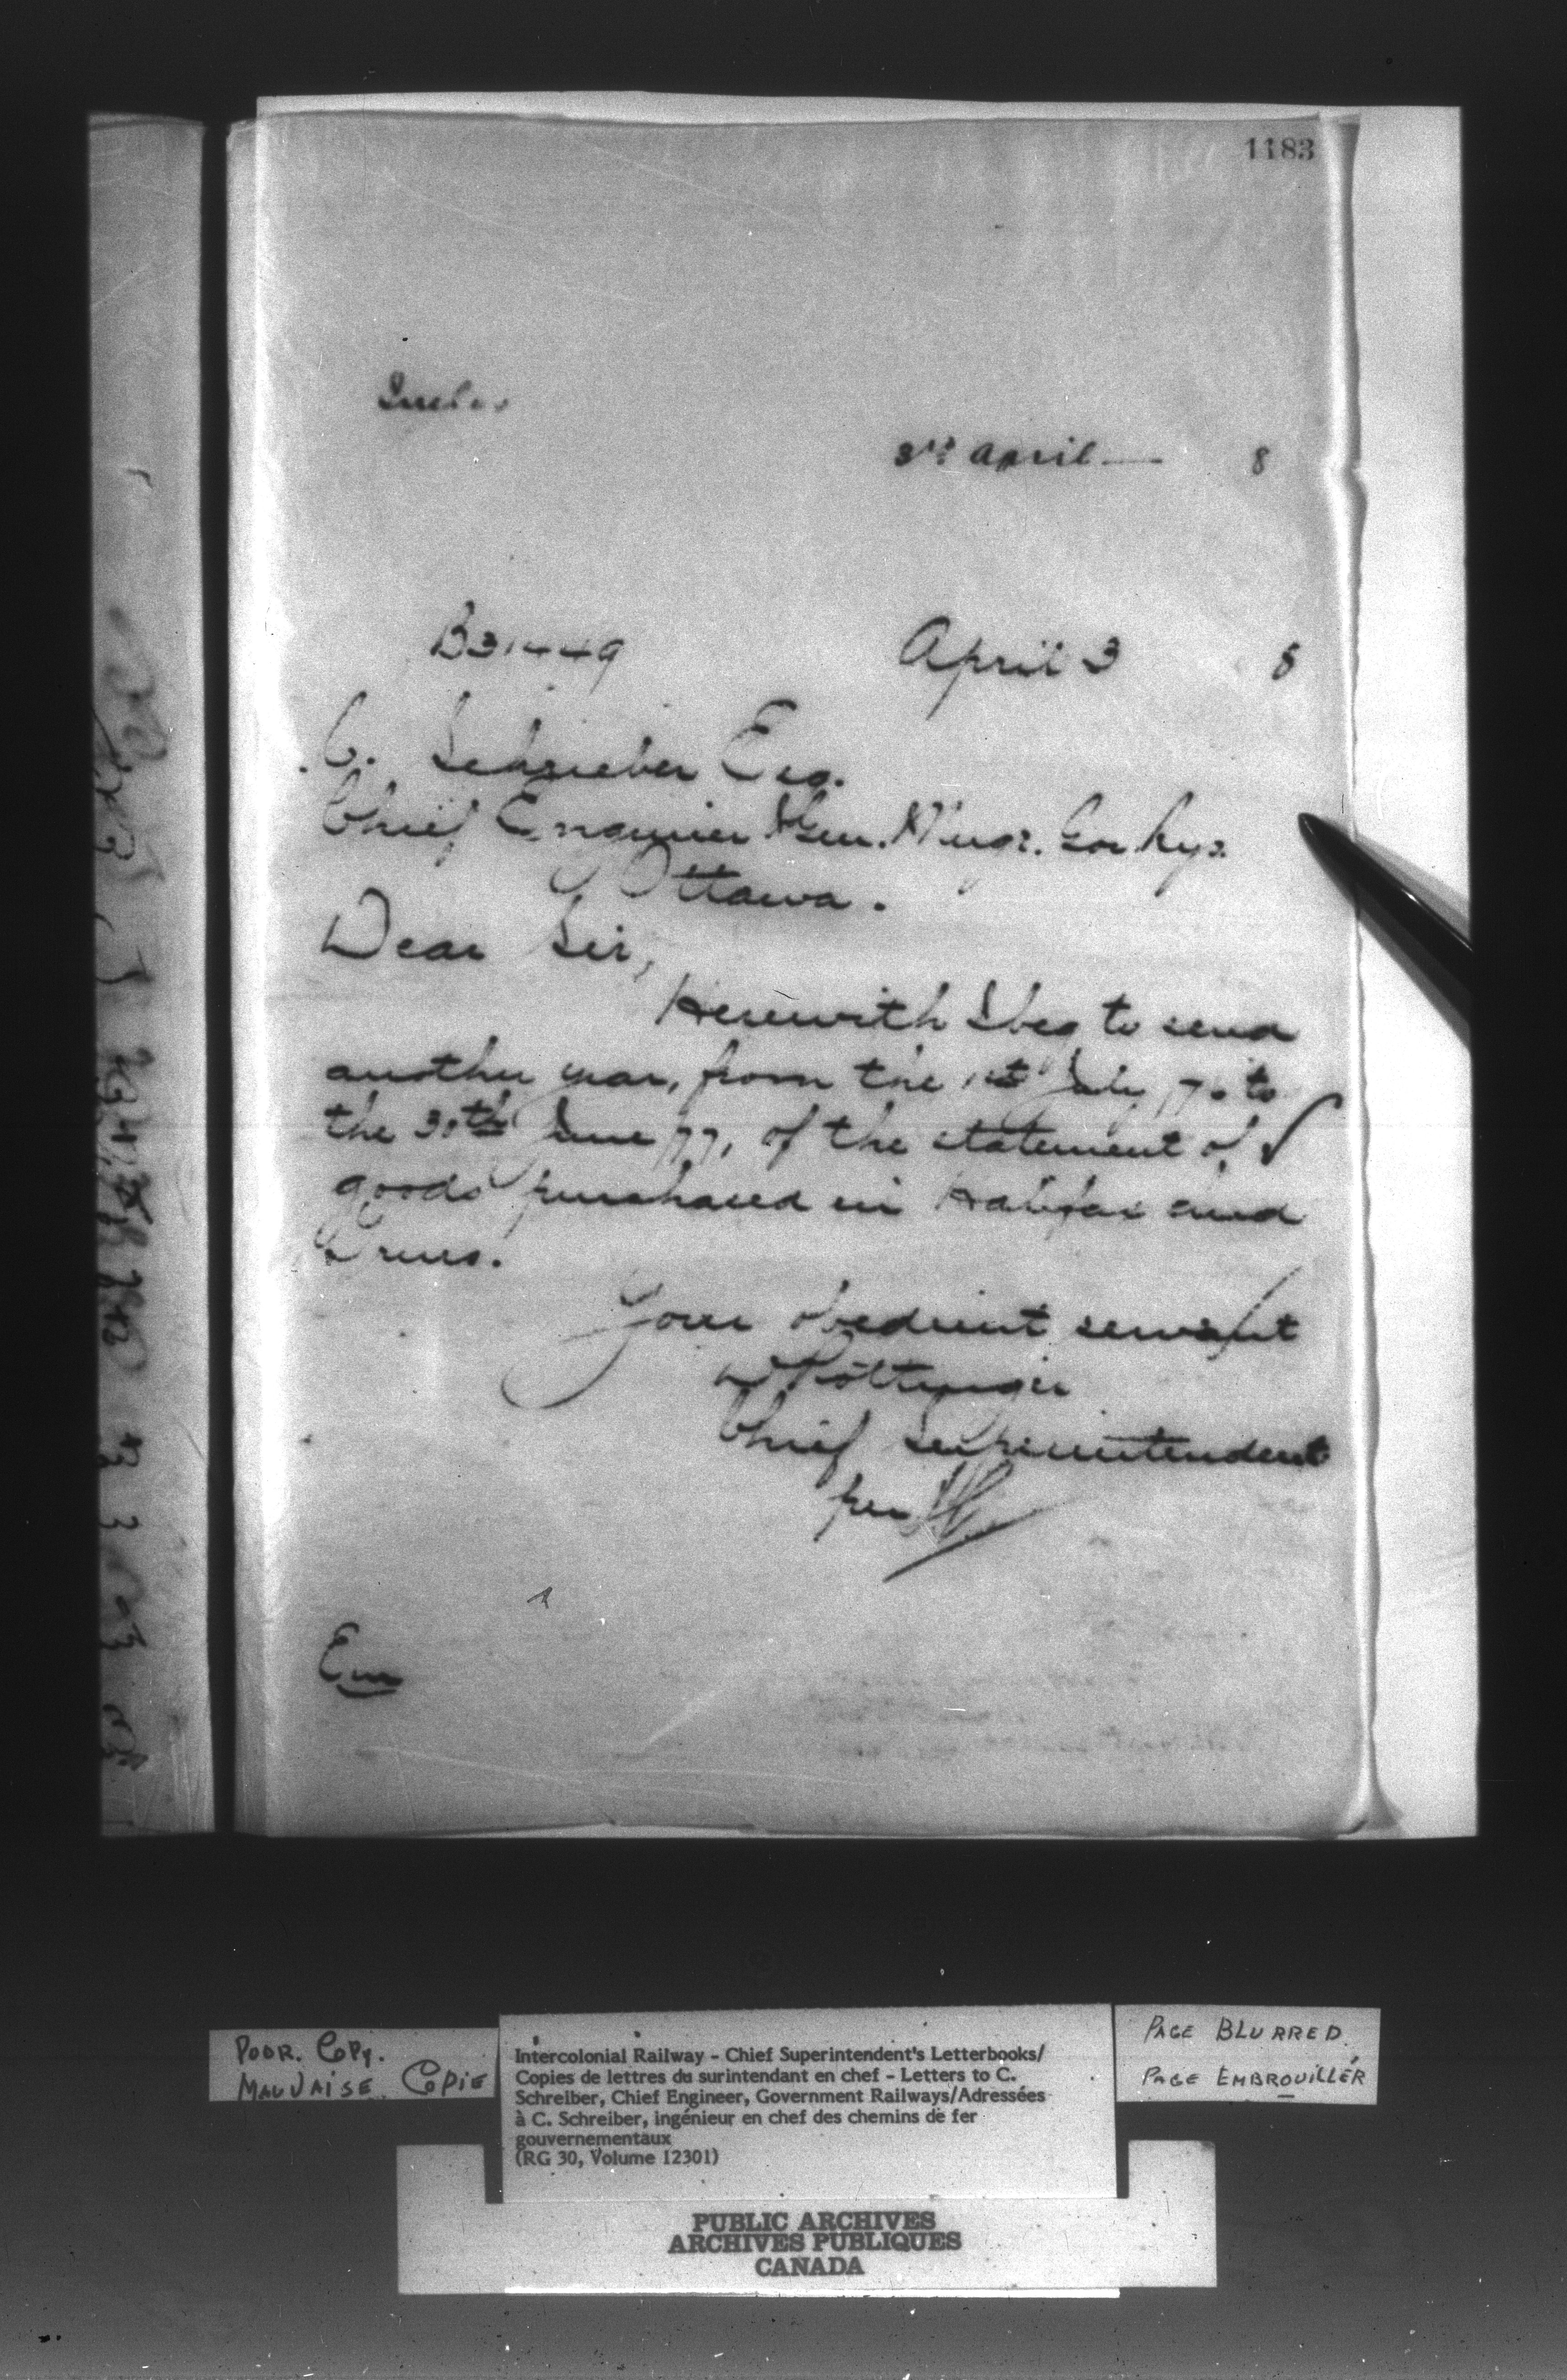 1183
3rd April — 8
B31449 April 3 8
C. Schrieber Esq.
Chief Engineer & Gen. Mngr. Gov Rys.
Ottawa.
Dear Sir,
Herewith I beg to send
another year, from the 1st July, 76 to
the 30th June 77, of the statement of
goods purchased in Halifax and
Truro.
Your obedient servant
D Pottinger
Chief Superintendent
per
Em
POOR. COPY.
MAUVAISE COPIE
Intercolonial Railway - Chief Superintendent's Letterbooks/
Copies de lettres du surintendant en chef - Letters to C.
Schreiber, Chief Engineer, Government Railways/Adressées
à C. Schreiber, ingénieur en chef des chemins de fer
gouvernementaux
(RG 30, Volume 12301)
PAGE BLURRED.
PAGE EMBROUILLÉR
PUBLIC ARCHIVES
ARCHIVES PUBLIQUES
CANADA